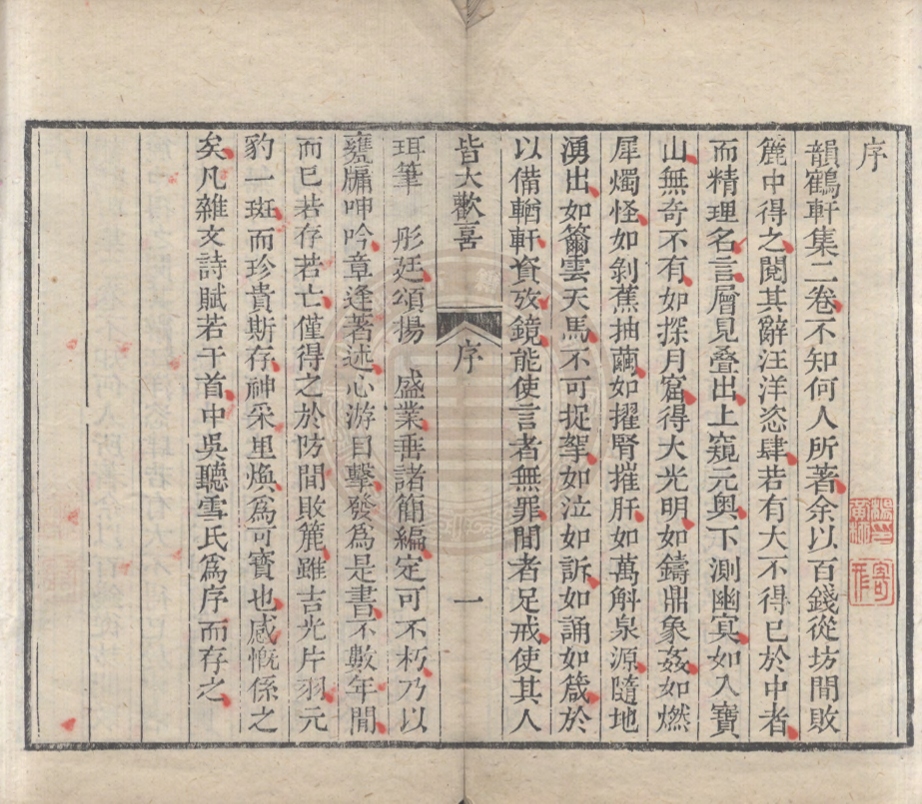 序
韻鶴軒集二卷不知何人所著余以百錢從坊間敗
簏中得之閱其辭汪洋恣肆若有大不得已於中者
而精理名言層見疊出上窺元奧下測幽冥如入寶
山無奇不有如探月窟得大光明如鑄鼎象姦如燃
犀燭怪如剝蕉抽繭如擢腎摧肝如萬斛泉源隨地
湧出如籋雲天馬不可捉拏如泣如訴如誦如箴於
以備輶軒資攷鏡能使言者無罪聞者足戒使其人
皆大歡喜
序
一
珥筆 彤廷頌揚 盛業垂諸簡編定可不朽乃以
甕牖呻吟章逢著述心游目擊發爲是書不數年間
而已若存若亡僅得之於坊間敗簏雖吉光片羽元
豹一斑而珍貴斯存神采里煥爲可寶也感慨係之
矣凡雜文詩賦若干首中吳聽雪氏爲序而存之